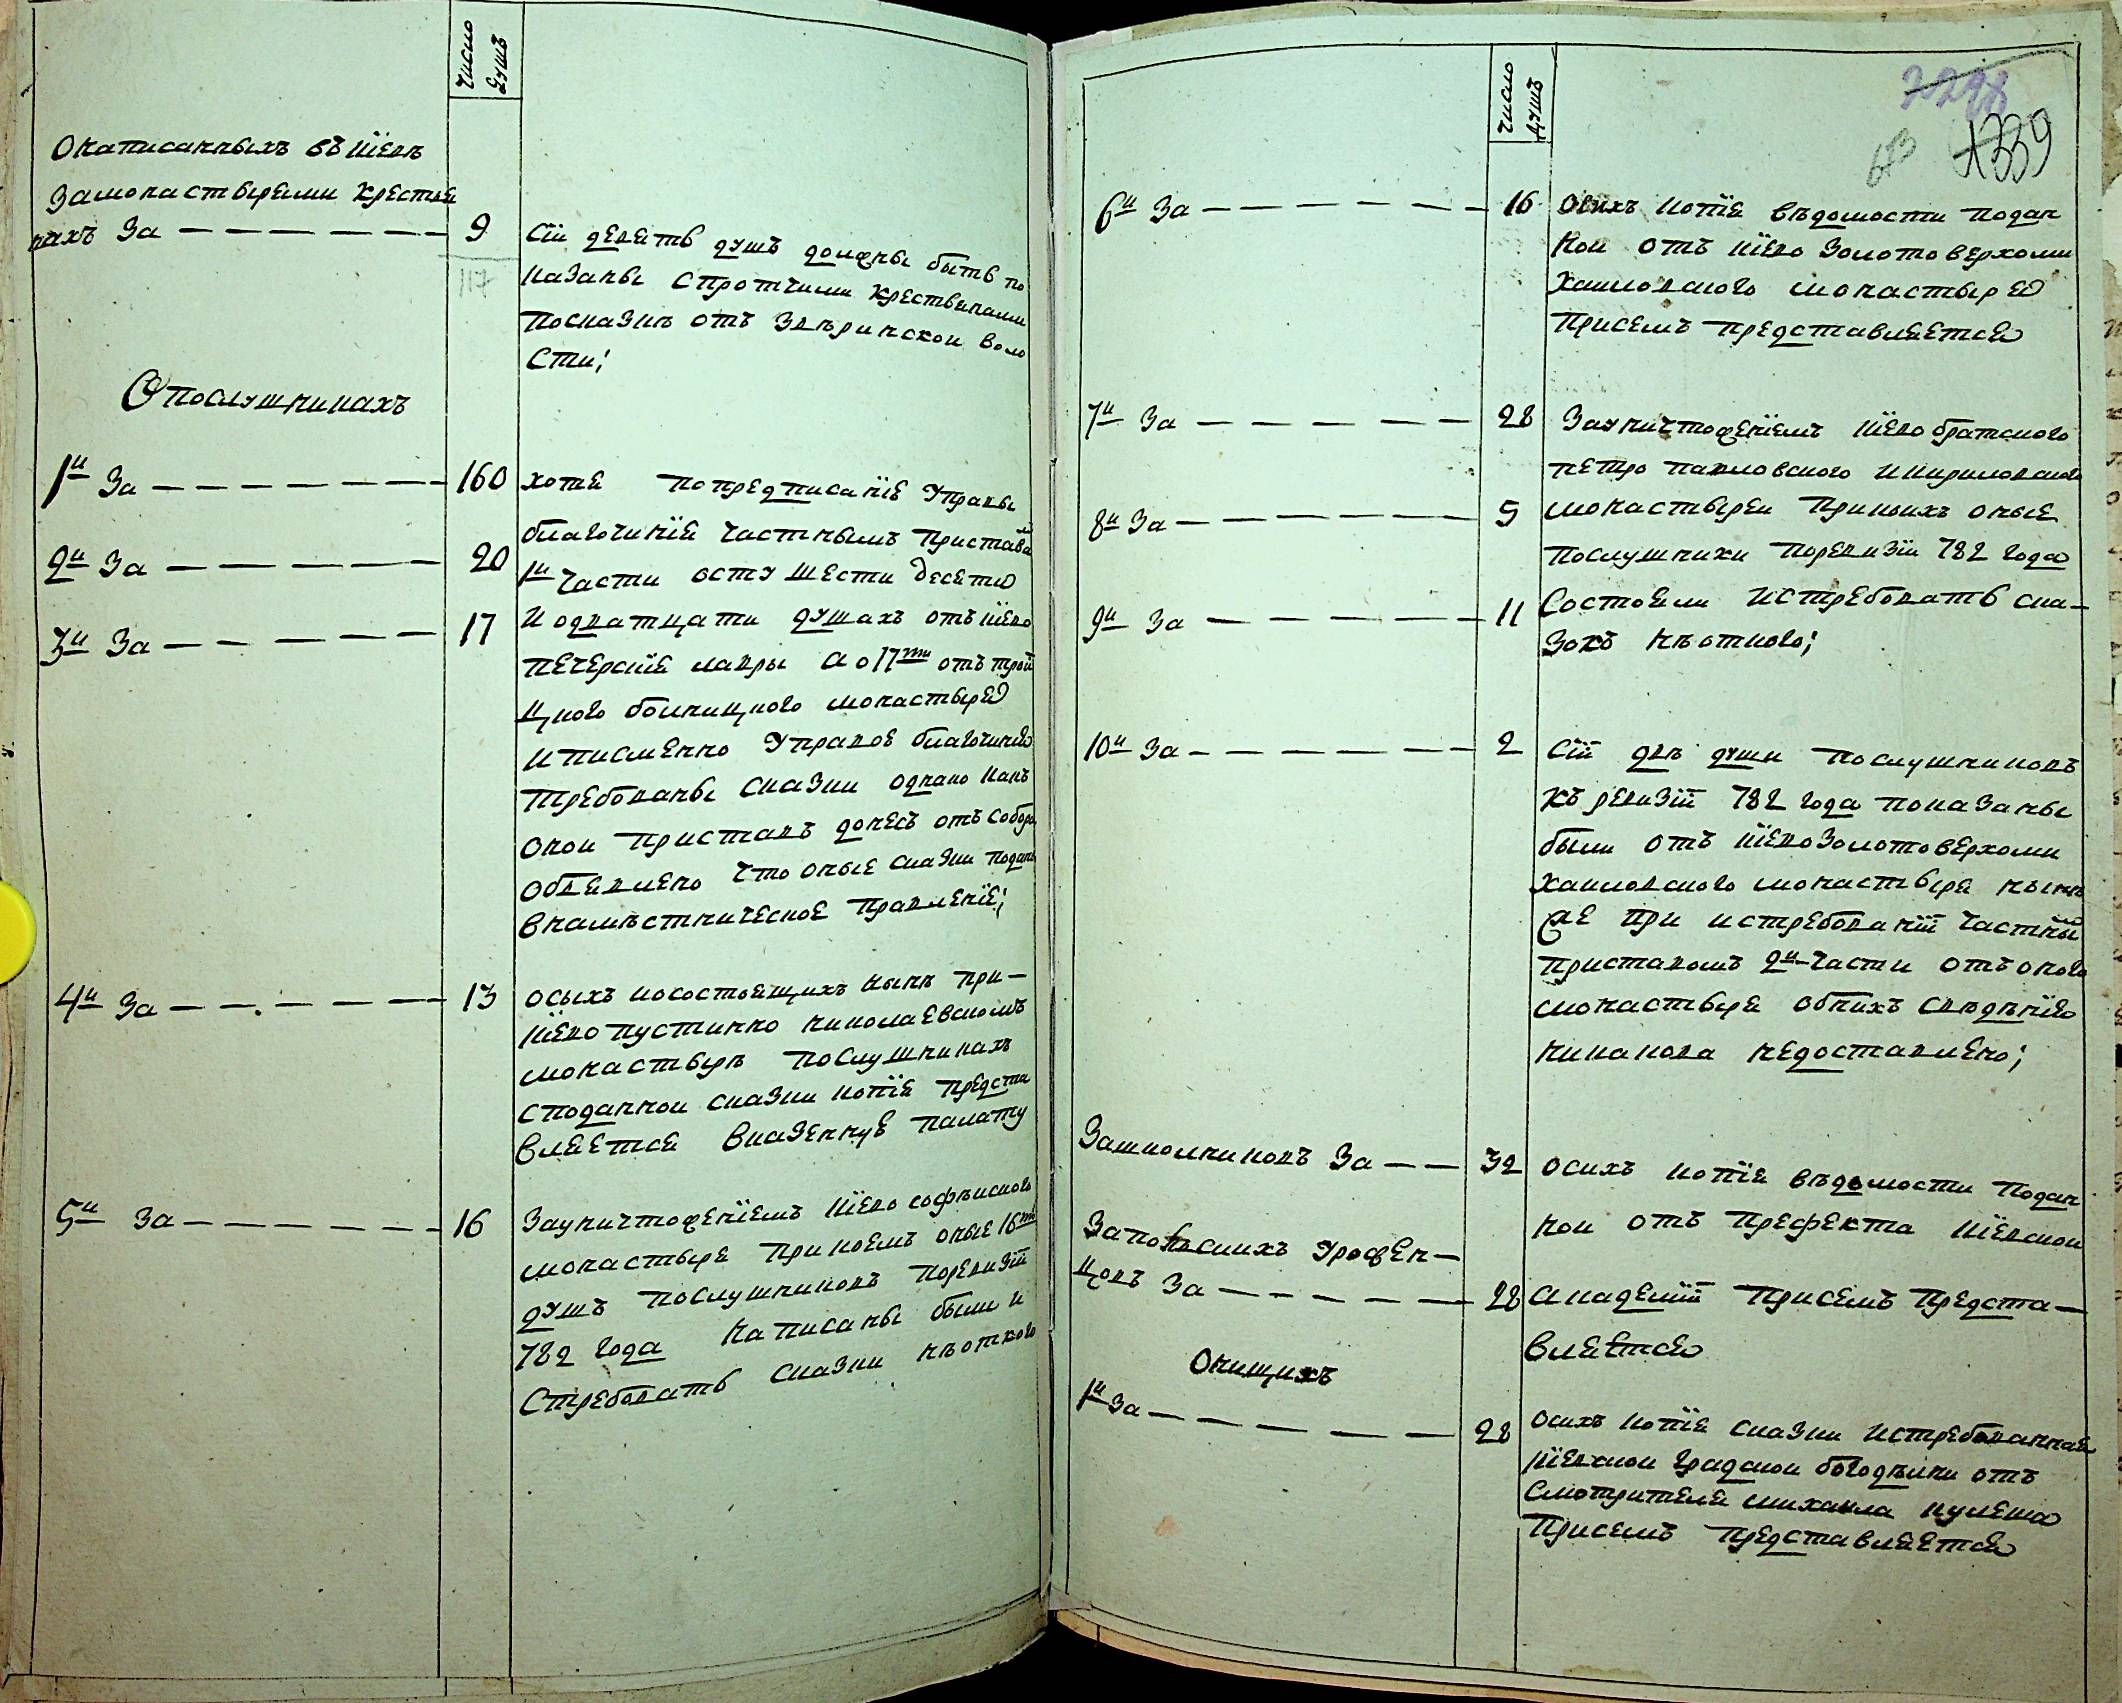 число
душъ
Онаписанныхъ въ Кіевѣ
Замонастырями крестья
нахъ За — 9
117
Сіи девять душъ должны быть по
казаны спротчими крестьянами
посказкѣ отъ Звѣринской воло
сти;
О послушникахъ
1й За — 160
хотя попредписанію Управы
благочинія частнымъ пристав
1й части осту шести десяти
2й За — 20
И одватцати душахъ отъ Кіево
3й За — 17
печерскія лавры а о 17ти отъ трои
цкого болницкого монастыря
и писменно Управою благочинія
требованы сказки однако какъ
оной приставъ донесъ отъ собора
объявлено что оные сказки подан
внамѣстническое правленіе;
4й За — 13
осыхъ косостоящихъ нынѣ при-
Кіево пустинно николаевскомъ
монастырѣ послушникахъ
споданной сказки копія предста
вляется вказенную палату
5й За — 16
Зауничтоженіемъ Кіево софѣиского
монастыря прикоемъ оные 16ть
душъ послушниковъ поревизіи
782 года написаны были и
стребовать сказки нѣоткого
число
душъ
2298
1339
6й За — 16
осихъ копія вѣдомости подан
ной отъ Кіево Золотоверхоми
хаиловского монастыря
присемъ представляется
7й За — 28
Зауничтоженіемъ Кіево братского
петро павловского икириловского
8й За — 5
монастырей прикоихъ оные
послушники поревизіи 782 года
9й За — 11
состояли истребовать ска-
зокъ нѣоткого;
10й За — 2
Сіи двѣ души послушниковъ
къ ревизіи 782 года показаны
были отъ Кіево Золотоверхоми
хаиловского монастыря нынѣ
же при истребованіи частны
приставомъ 2й части отъ оного
монастыря обнихъ свѣдѣнія
никакова недоставлено;
Зашколниковъ За — 32
осихъ копія вѣдомости подан
ной отъ префекта Кіевской
Запольскихъ урожен-
цовъ За — 28
академіи присемъ предста-
вляется
Онищихъ
1й За — 28
осихъ копія сказки истребованная
Кіевской градской богодѣлни отъ
смотрителя михаила кулеша
присемъ представляется